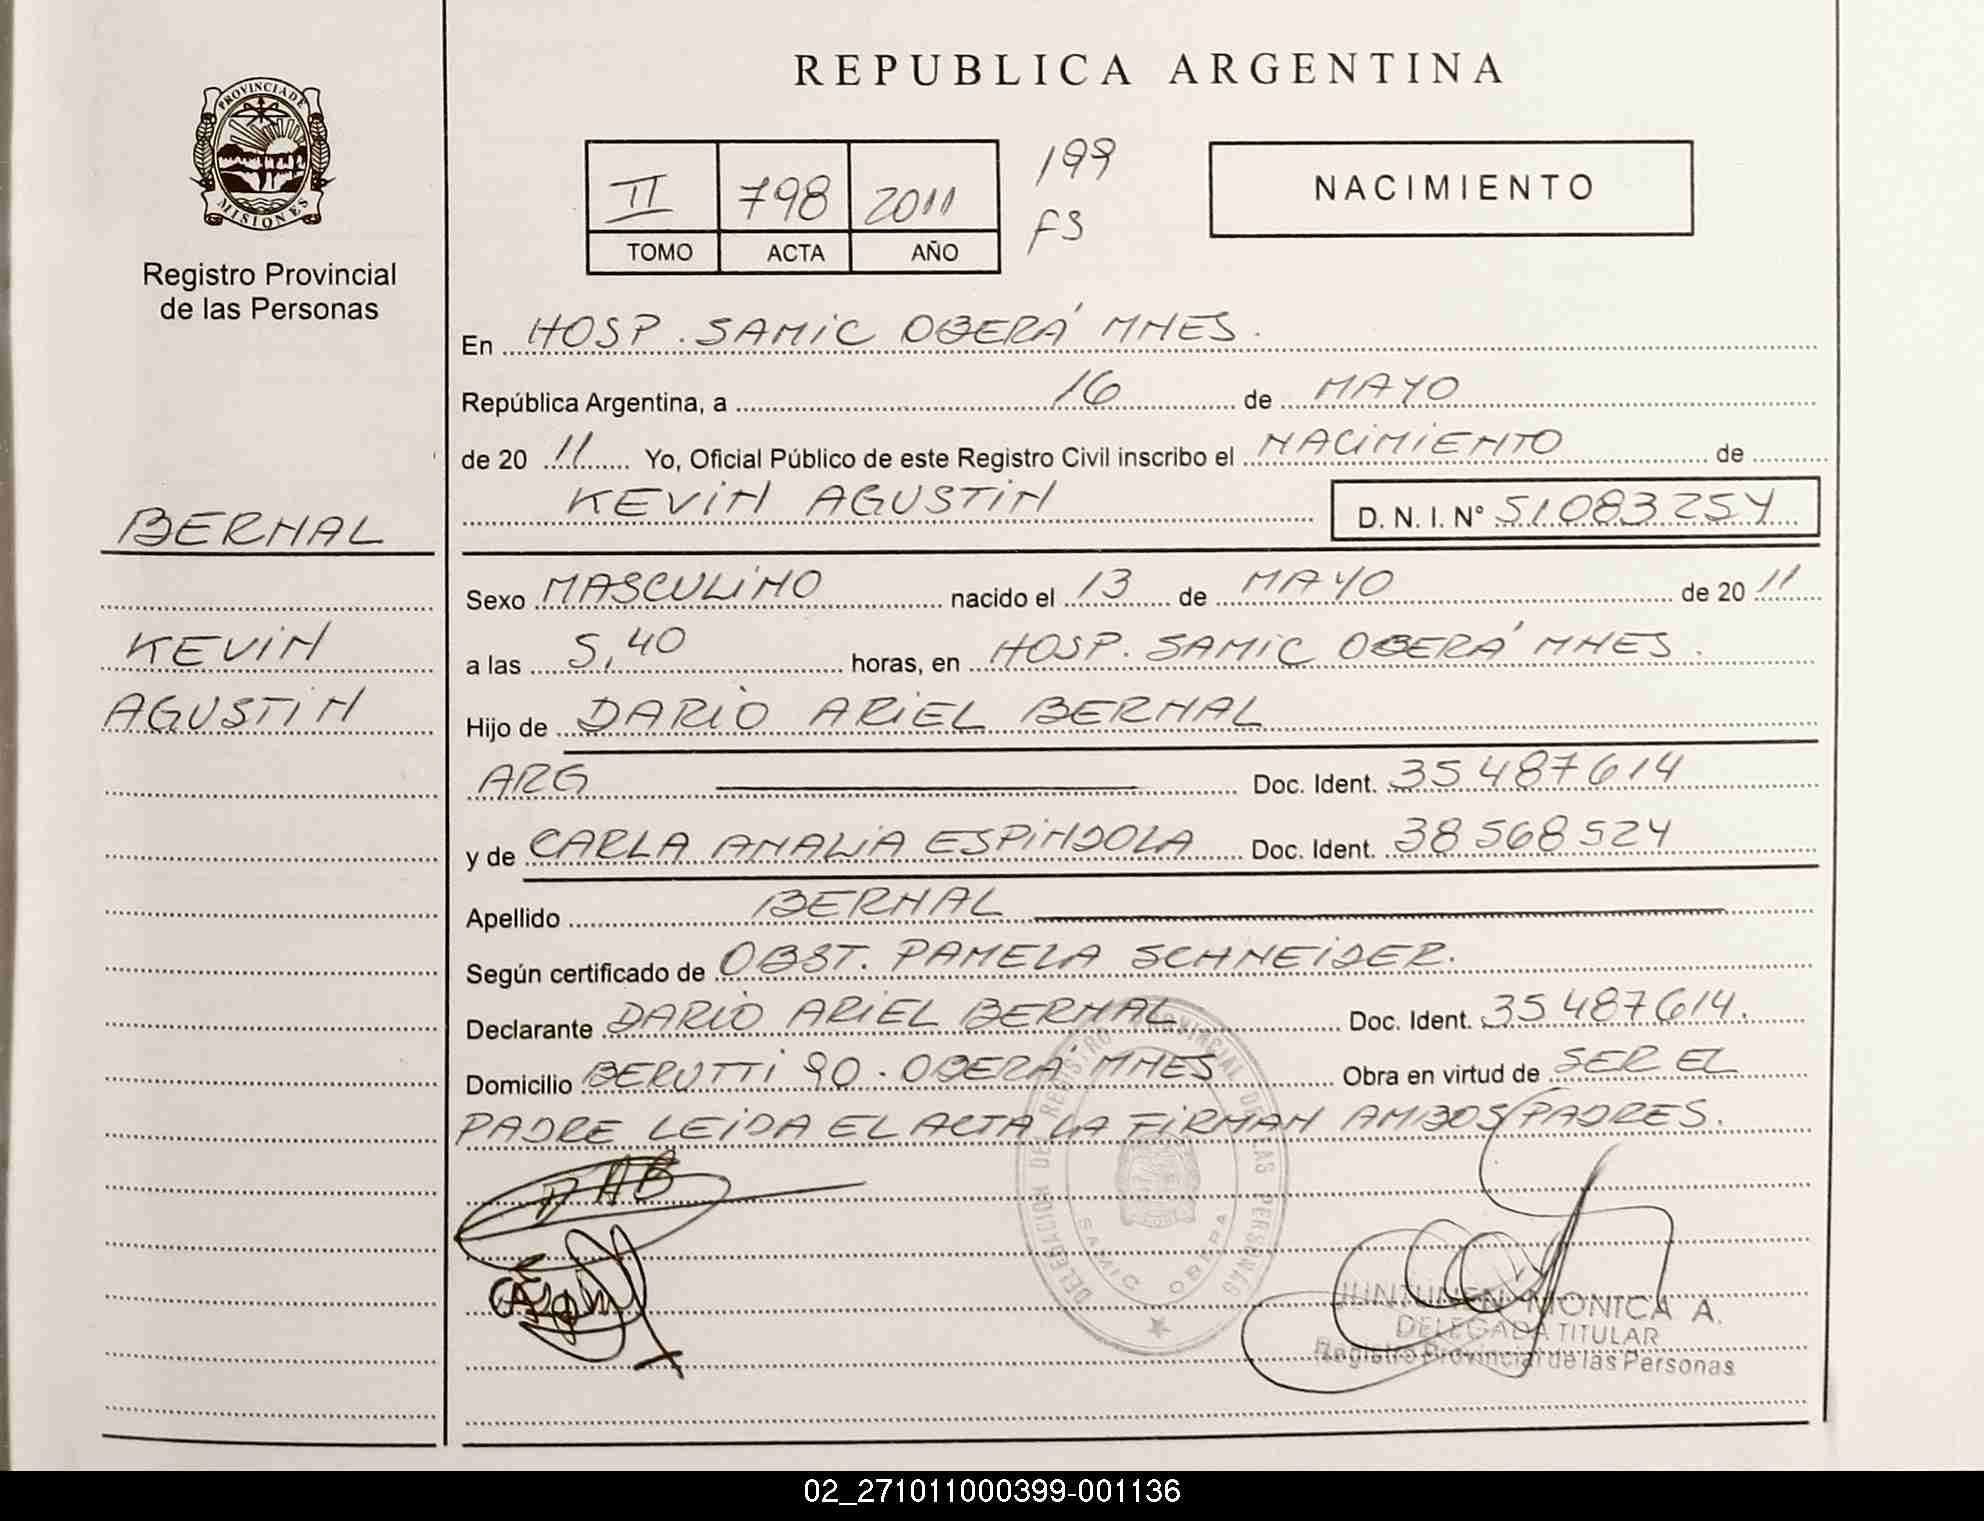 REPUBLICA ARGENTINA
PROVINCIA DE MISIONES
Registro Provincial
de las Personas
II 798 2011
TOMO ACTA AÑO
199
FS
NACIMIENTO
En HOSP. SAMIC OBERÁ MNES.
República Argentina, a 16 de MAYO
de 20 11 Yo, Oficial Público de este Registro Civil inscribo el NACIMIENTO de
KEVIN AGUSTIN D. N. I. N° 51.083254
BERNAL
KEVIN
AGUSTIN
Sexo MASCULINO nacido el 13 de MAYO de 20 11
a las 5,40 horas, en HOSP. SAMIC OBERÁ MNES.
Hijo de DARIO ARIEL BERNAL
ARG Doc. Ident. 35487614
y de CARLA ANALIA ESPINDOLA Doc. Ident. 38568524
Apellido BERNAL
Según certificado de OBST. PAMELA SCHNEIDER.
Declarante DARIO ARIEL BERNAL Doc. Ident. 35487614.
Domicilio BERUTTI 90. OBERÁ MNES Obra en virtud de SER EL
PADRE LEIDA EL ACTA LA FIRMAN AMBOS PADRES.
DAB
DELEGACION DEL REGISTRO PROVINCIAL DE LAS PERSONAS
SAMIC OBERA
MONICA A.
DELEGADA TITULAR
Registro Provincial de las Personas
02_271011000399-001136